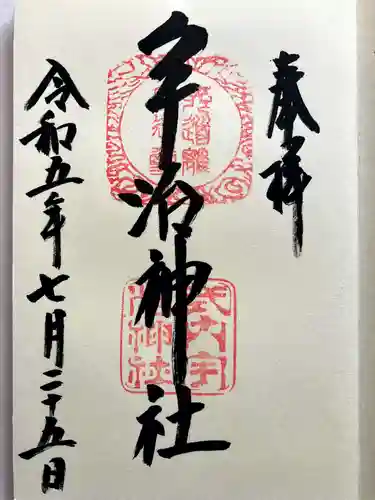 奉拝
宇治神社
式内宇
治神社
令和五年七月二十五日